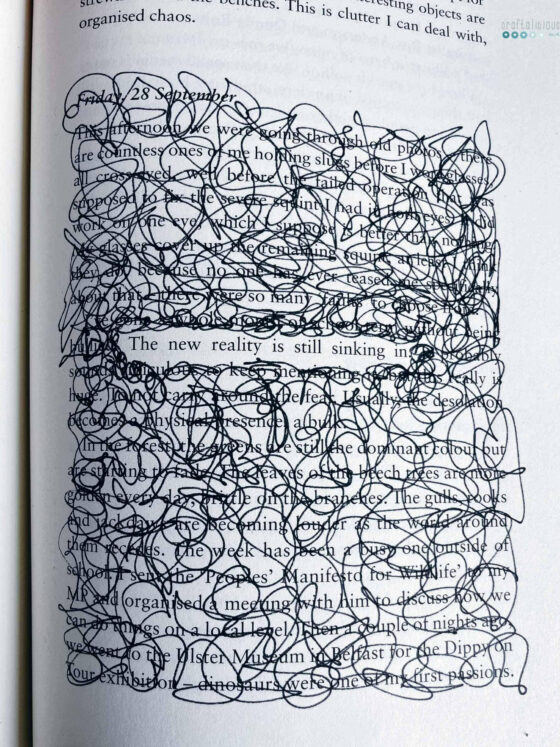 benches. This is clutter I can deal with,
organised chaos.
craftalicious
Friday, 28 September
This afternoon we were going through old photos, there
are countless ones of me holding slugs before I wore glasses,
all cross-eyed, well before the failed operation that was
supposed to fix the severe squint I had in both eyes. It did
work on one eye, which I suppose is better than nothing.
My glasses cover up the remaining squint, at least I think
they do, because no one has ever teased me specifically
about that – there were so many faults to choose from.
whole month of school without being
The new reality is still sinking in, probably
sounds ridiculous to keep mentioning this really is
huge. I'm not carrying around the fear. Usually, the desolation
becomes a physical presence, a bulk.
In the forest, the greens are still the dominant colour but
are starting to fade. The leaves of the beech trees are more
golden every day, brittle on the branches. The gulls, rooks
and jackdaws are becoming louder as the world around
them recedes. The week has been a busy one outside of
school. I sent the 'Peoples' Manifesto for Wildlife' to my
MP and organised a meeting with him to discuss how we
can do things on a local level. Then a couple of nights ago,
we went to the Ulster Museum in Belfast for the Dippy on
Tour exhibition – dinosaurs were one of my first passions.